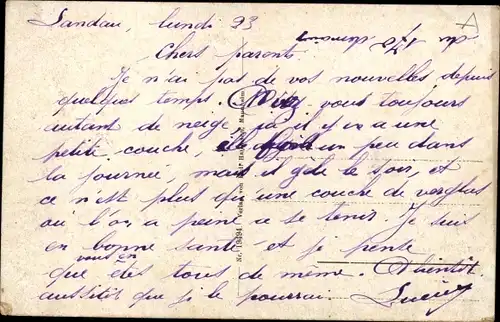 Landau, lundi 23
Chers parents.
Je n'ai pas de vos nouvelles depuis
quelques temps. Avez-vous toujours
autant de neige, ici il y en a une
petite couche, un peu dans
la journée, mais il gèle le soir, et
ce n'est plus qu'une couche de verglas
où l'on a peine à se tenir. Je suis
en bonne santé et je pense
que vous en êtes tous de même. A bientôt
aussitôt que je le pourrai. Lucien
Nr. 19494